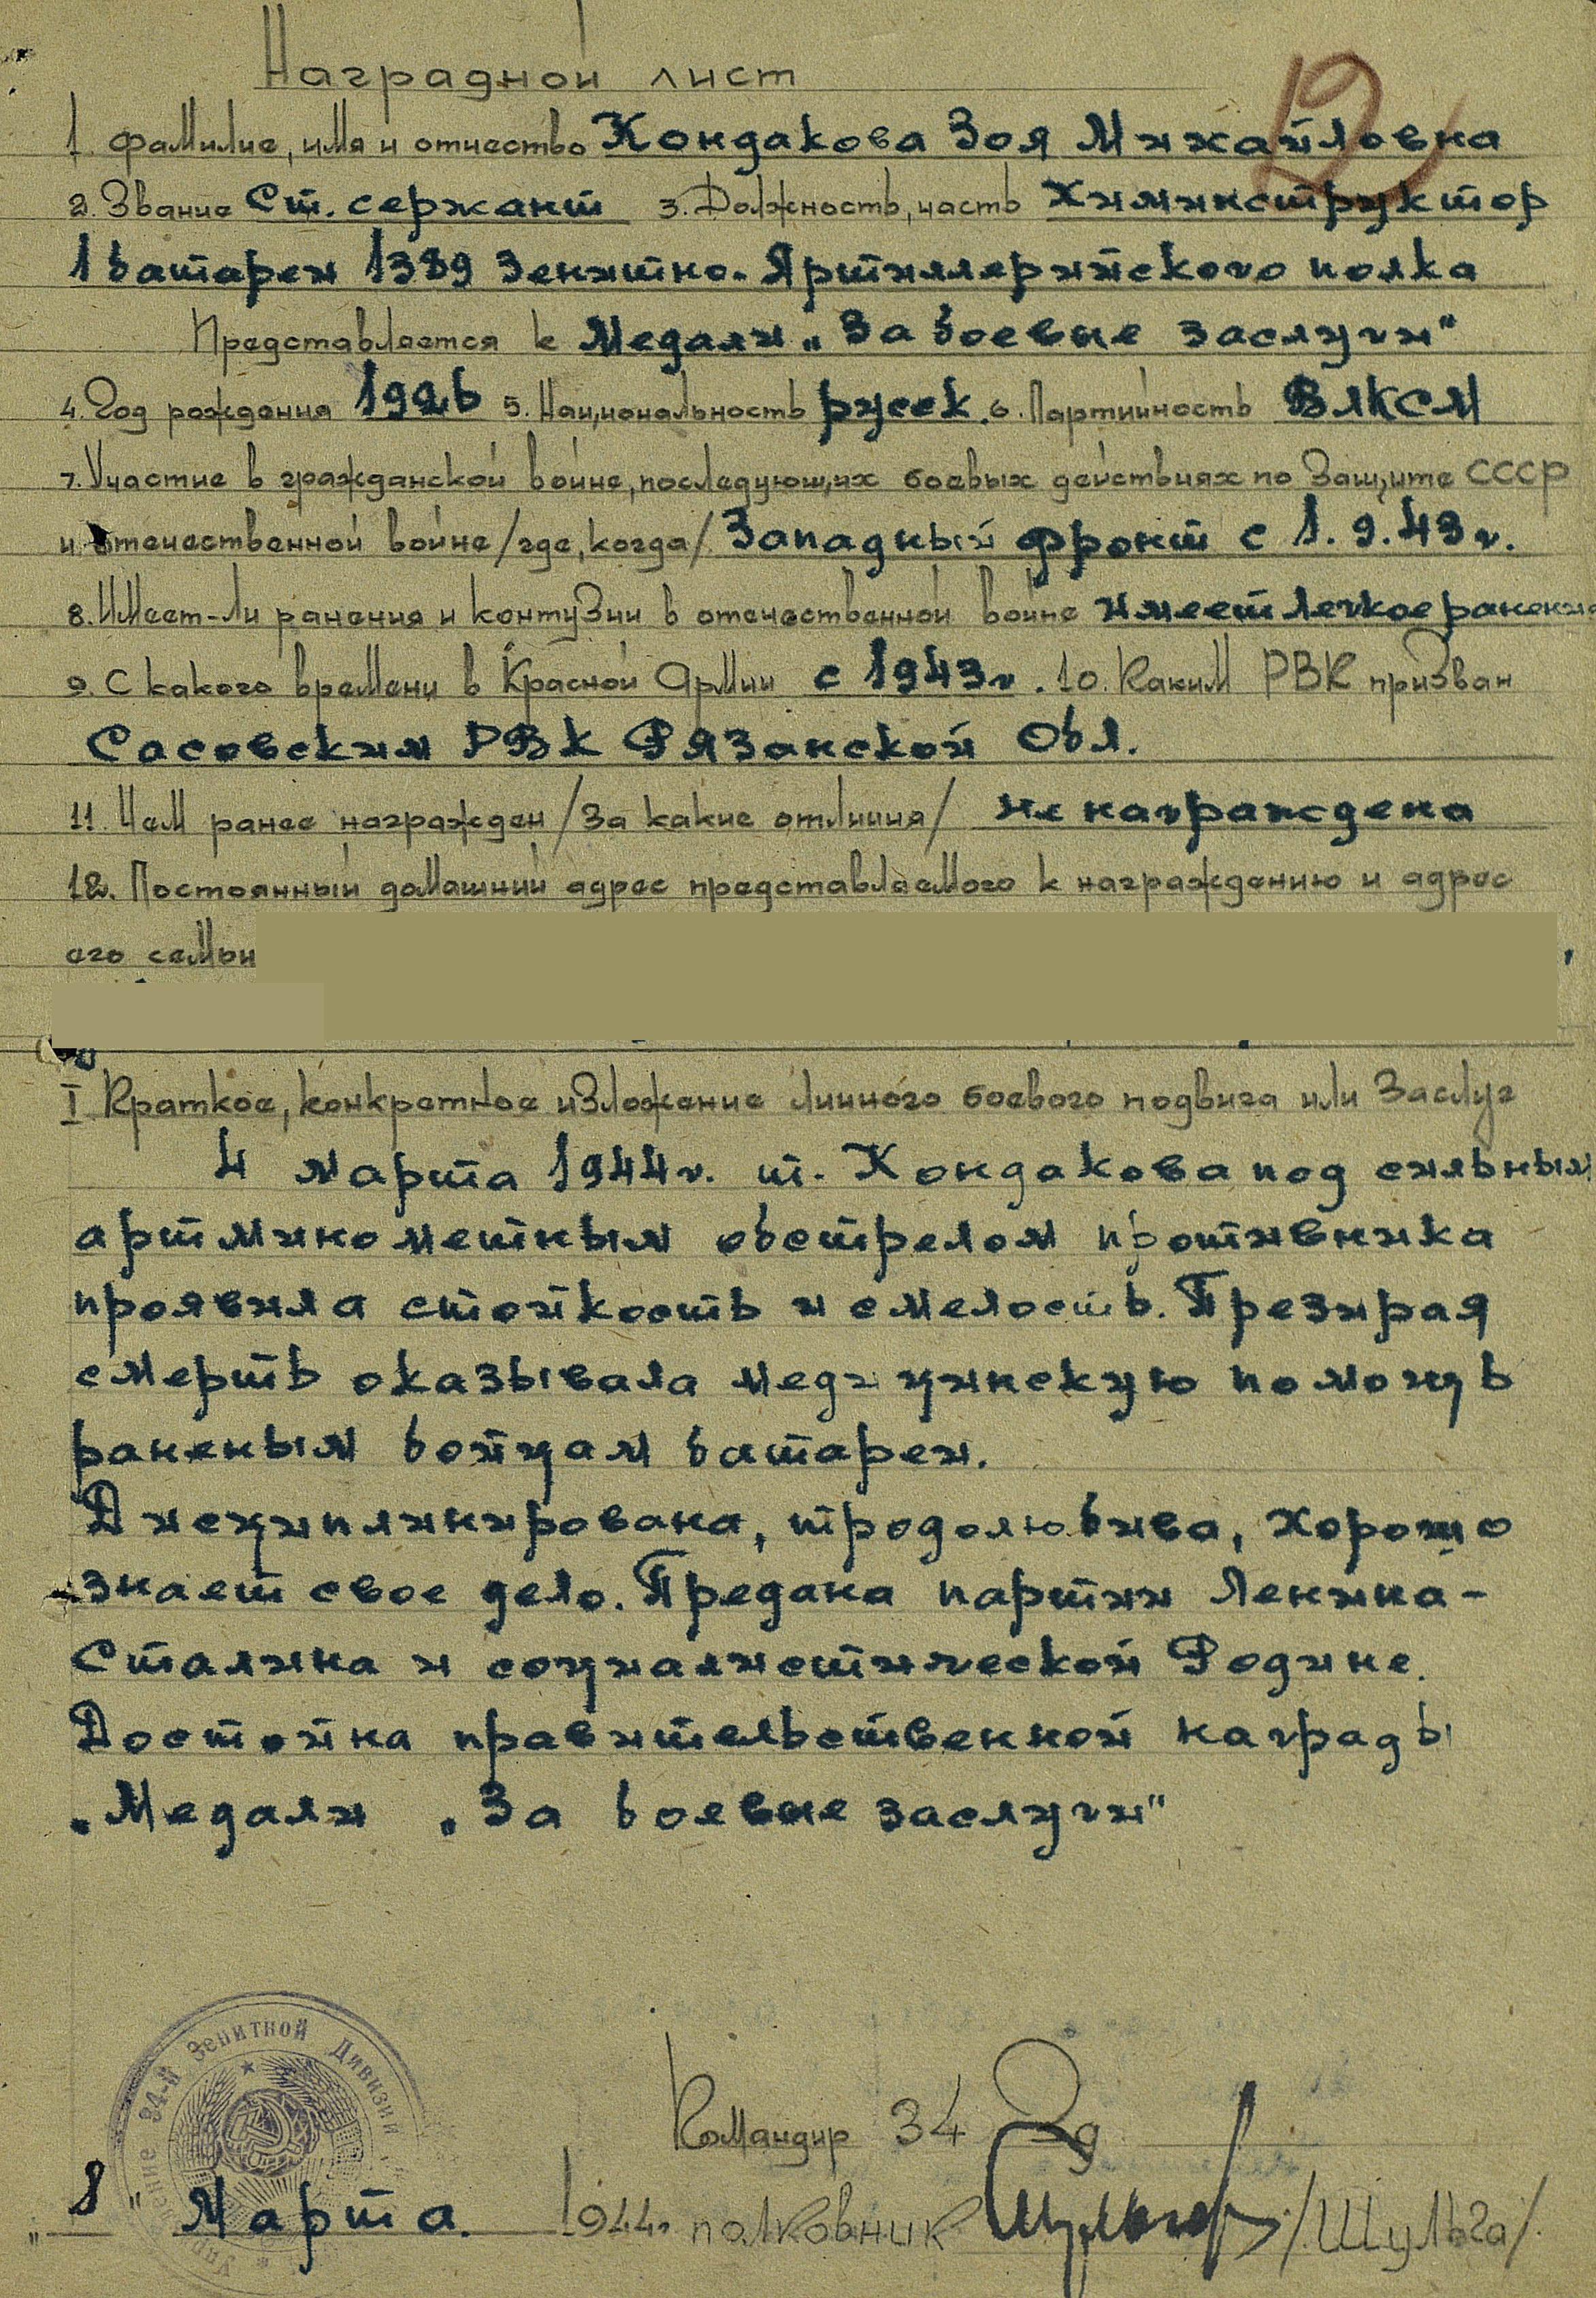 Наградной лист
12
1. Фамилие, имя и отчество Кондакова Зоя Михайловна
2. Звание Ст. сержант 3. Должность, часть Химинструктор
1 батареи 1389 Зенитно-Артиллерийского полка
Представляется к Медали „За боевые заслуги"
4. Год рождения 1926 5. Национальность русск. 6. Партийность ВЛКСМ
7. Участие в гражданской войне, последующих боевых действиях по защите СССР
и отечественной войне /где, когда/ Западный фронт с 1.9.43 г.
8. Имеет-ли ранения и контузии в отечественной войне имеет легкое ранение
9. С какого времени в Красной Армии с 1943 г. 10. Каким РВК призван
Сасовским РВК Рязанской Обл.
11. Чем ранее награжден /за какие отличия/ не награждена
12. Постоянный домашний адрес представляемого к награждению и адрес
его семьи
I Краткое, конкретное изложение личного боевого подвига или заслуг
4 Марта 1944 г. т. Кондакова под сильным
артминометным обстрелом противника
проявила стойкость и смелость. Презирая
смерть оказывала медицинскую помощь
раненым бойцам батареи.
Дисциплинирована, тродолюбива, хорошо
знает свое дело. Предана партии Ленина-
Сталина и социалистической Родине.
Достойна правительственной награды
„Медали „За боевые заслуги"
Управление 34-й Зенитной Дивизии
Командир 34
„8" Марта. 1944г. полковник /Шульга/.